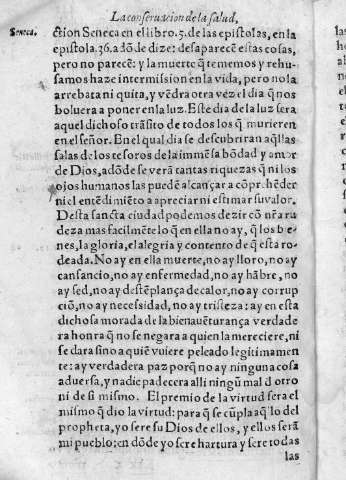 La conseruacion de la salud,
Seneca.
ction Seneca en el libro.5. de las epistolas, en la
epistola.36. adõ de dize: desaparecẽ estas cosas,
pero no parecẽ: y la muerte q̃ tememos y rehu-
samos haze intermission en la vida, pero no la
arrebata ni quita, y vẽdra otra vez el dia q̃ nos
boluera a poner en la luz. Este dia de la luz sera
aquel dichoso trãsito de todos los q̃ murieren
en el señor. En el qual dia se descubriran aq̃llas
salas de los tesoros de la immẽsa bõdad y amor
de Dios, adõde se verã tantas riquezas q̃ ni los
ojos humanos las puedẽ alcançar a cõprehẽder
ni el entẽdimiẽto a apreciar ni estimar su valor.
Desta sancta ciudad podemos dezir cõ nr̃a ru
deza mas facilmẽte lo q̃ en ella no ay, q̃ los bie-
nes, la gloria, el alegria y contento de q̃ esta ro-
deada. No ay en ella muerte, no ay lloro, no ay
cansancio, no ay enfermedad, no ay hãbre, no
ay sed, no ay destẽplança de calor, no ay corrup
ciõ, no ay necessidad, no ay tristeza: ay en esta
dichosa morada de la bienauẽturança verdade
ra honra q̃ no se negara a quien la mereciere, ni
se dara sino a quiẽ vuiere peleado legitimamen
te: ay verdadera paz porq̃ no ay ninguna cosa
aduersa, y nadie padecera alli ningũ mal d otro
ni de si mismo. El premio de la virtud sera el
mismo q̃ dio la virtud: para q̃ se cũpla aq̃llo del
propheta, yo sere su Dios de ellos, y ellos serã
mi pueblo: en dõde yo sere hartura y sere todas
las